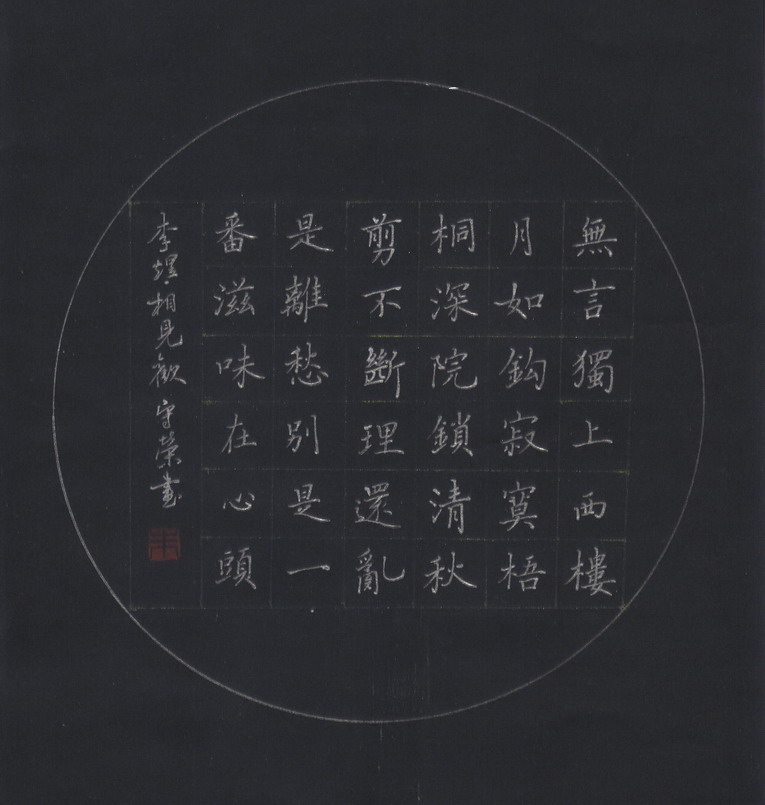 無言獨上西樓
月如鈎寂寞梧
桐深院鎖清秋
剪不斷理還亂
是離愁別是一
番滋味在心頭
李煜相見歡守榮書